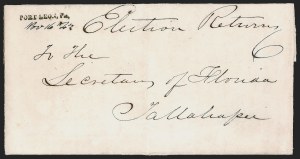 PORT LEON, Fa.
Nov 14
Election Returns
6
To the
Secretary of Florida
Tallahassee